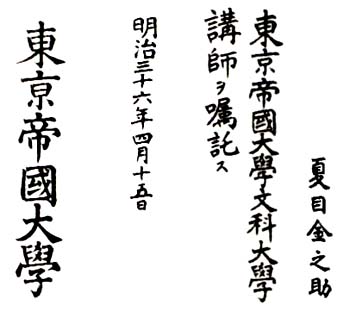 夏目金之助
東京帝國大學文科大學
講師ヲ嘱託ス
明治三十六年四月十五日
東京帝國大學